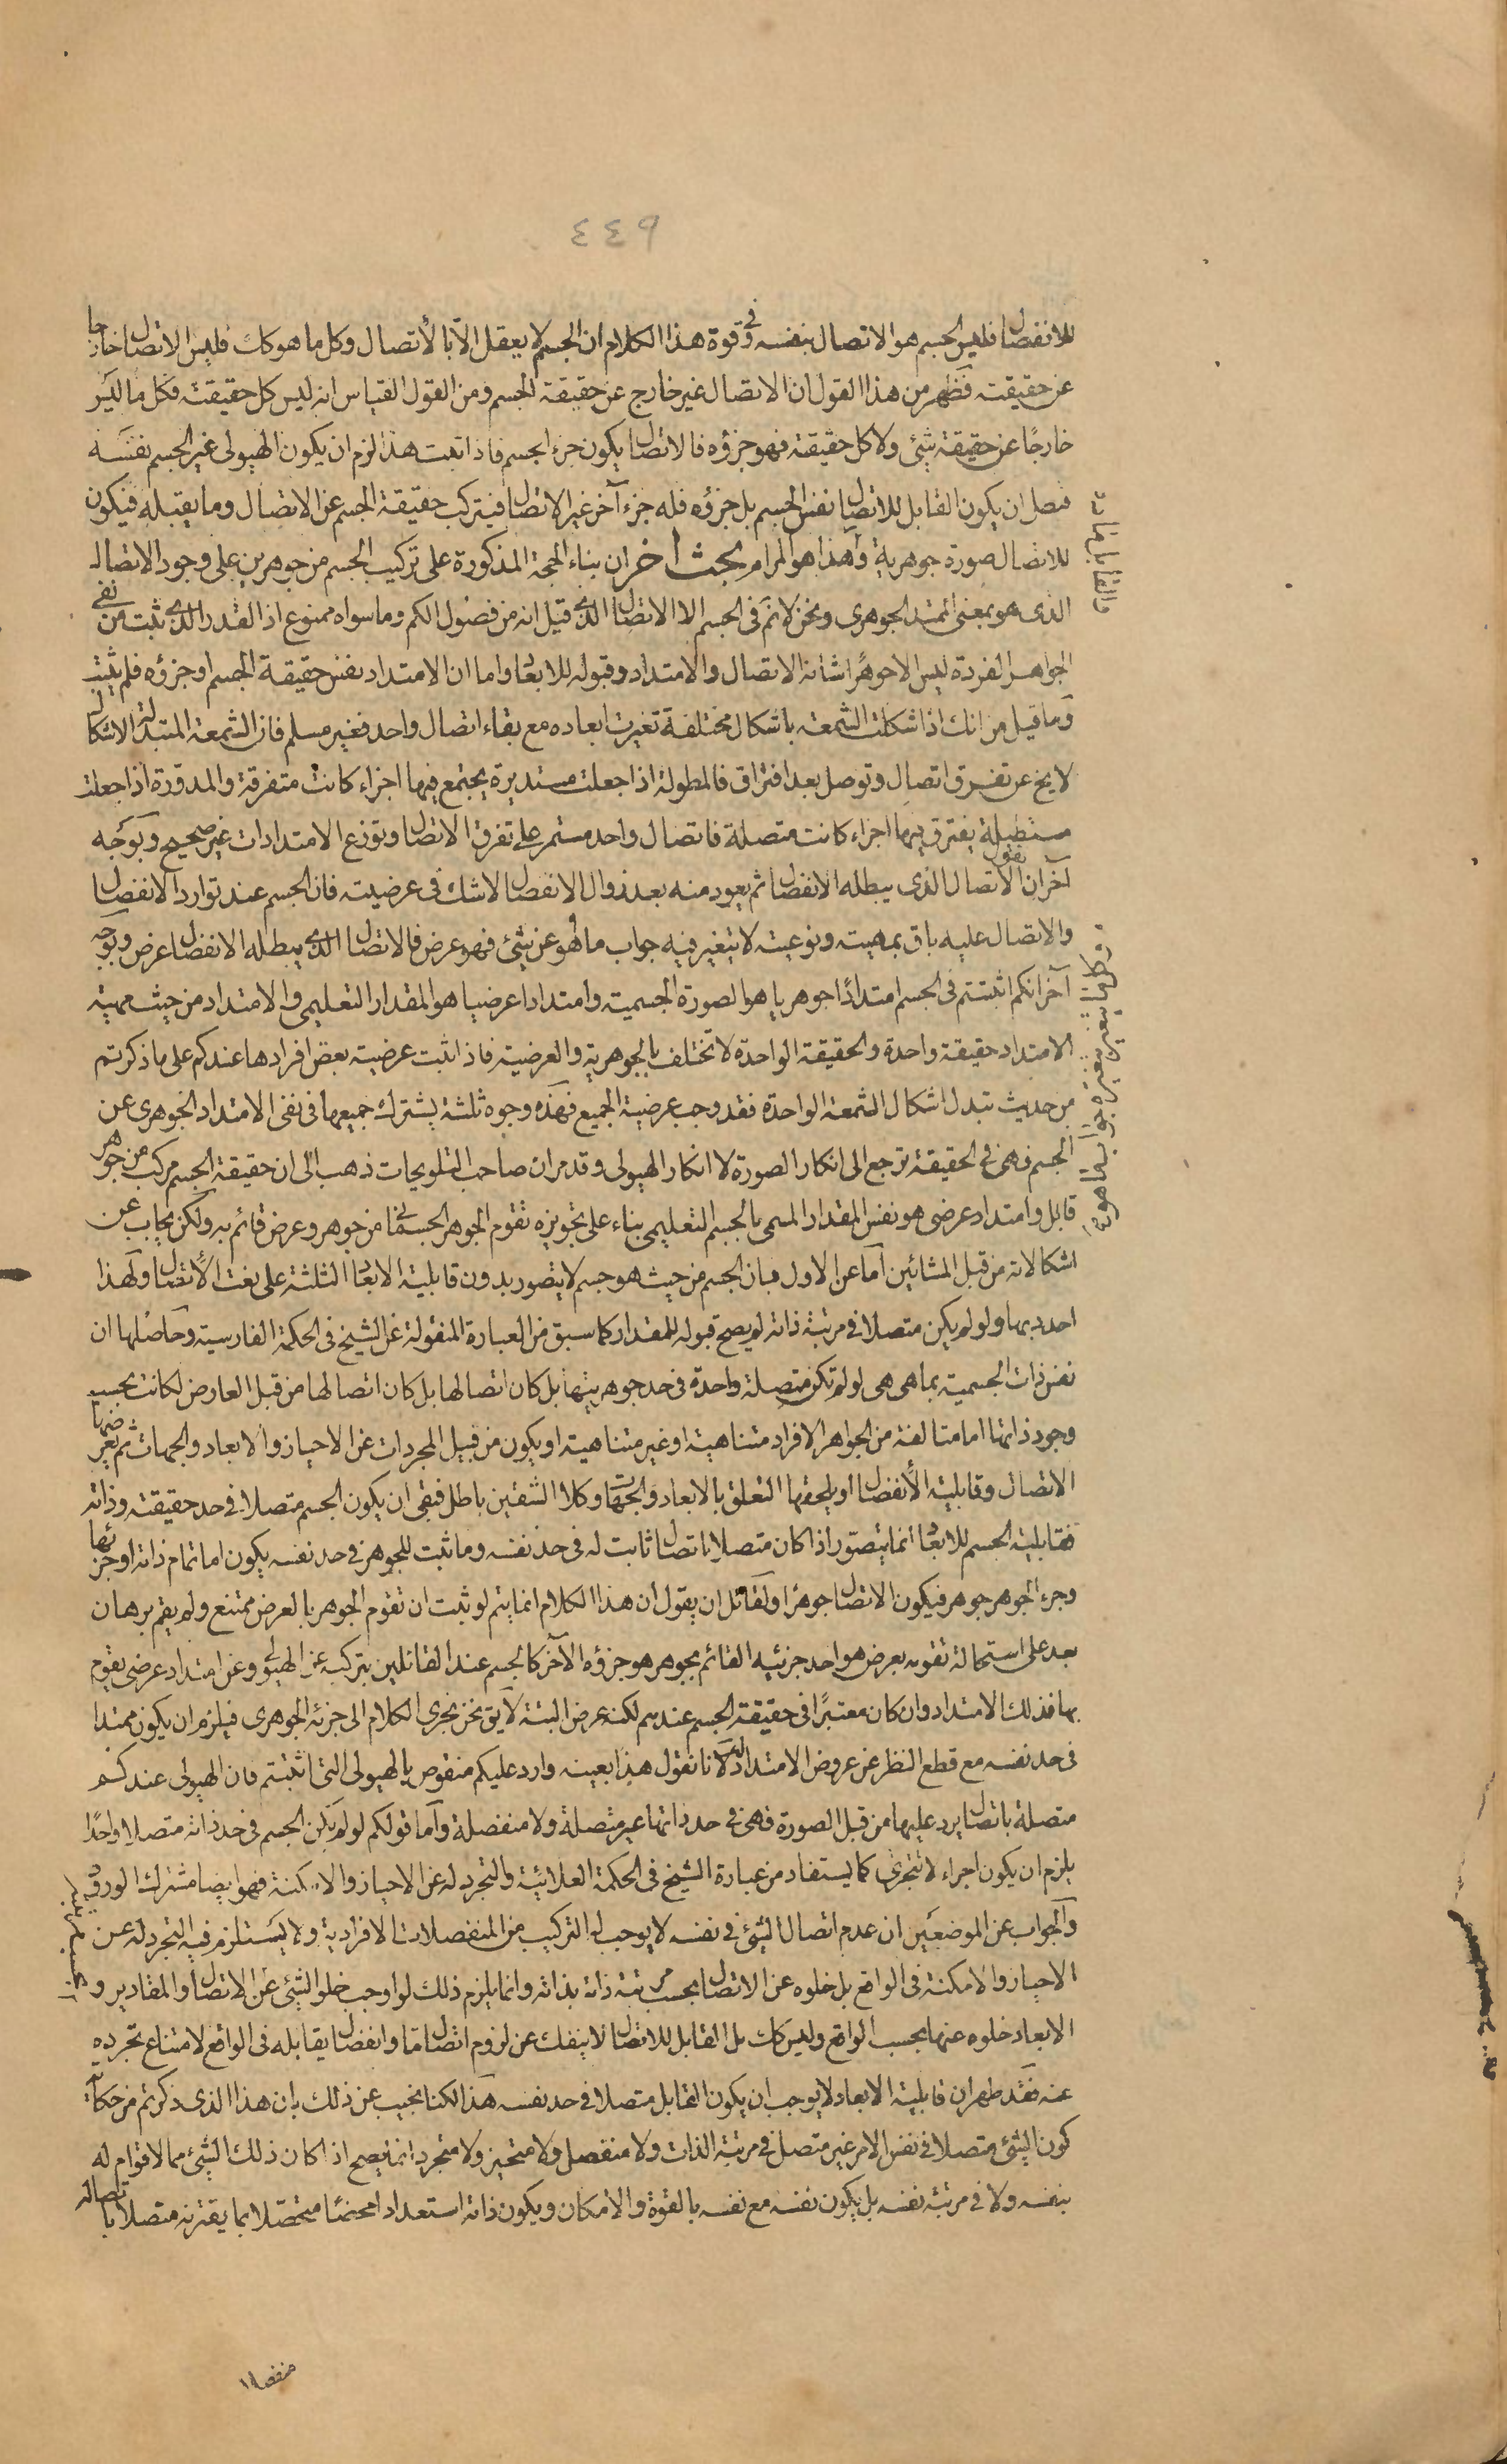 ٤٤٩
للانفصال فليس الجسم هو الاتصال بنفسه وفي قوة هذا الكلام ان الجسم لا يعقل الا بالاتصال وكل ما هو كك فليس الاتصال خارجا
عن حقيقته فظهر من هذا القول ان الاتصال غير خارج عن حقيقة الجسم ومن القول القياس انه ليس كل حقيقته فكل ما ليس
خارجا عن حقيقة شئ ولا كل حقيقة فهو جزؤه فالاتصال يكون جزء الجسم فاذا ثبت هذا لزم ان يكون الهيولى غير الجسم بنفسه
فصل ان يكون القابل للاتصال نفس الجسم بل جزؤه فله جزء آخر غير الاتصال فيتركب حقيقة الجسم عن الاتصال وما يقبله فيكون
للاتصال صورة جوهرية وهذا هو المرام بحث اخر ان بناء الحجة المذكورة على تركيب الجسم من جوهرين على وجود الاتصال
الذى هو بمعنى الممتد الجوهرى ونحن لا نم فى الجسم الا الاتصال الذى قيل انه من فصول الكم وما سواه ممنوع اذ القدر الذى ثبت من نفى
الجواهر الفردة ليس الا جوهرا شانه الاتصال والامتداد وقبوله للابعاد واما ان الامتداد نفس حقيقة الجسم او جزؤه فلم يثبت
وما قيل من انك اذا شكلت الشمعة باشكال مختلفة تغيرت ابعاده مع بقاء اتصال واحد فغير مسلم فان الشمعة المتبدلة الاشكال
لا يخ عن تفرق اتصال وتوصل بعد افتراق فالمطولة اذا جعلت مستديرة يجتمع فيها اجزاء كانت متفرقة والمدورة اذا جعلت
مستطيلة يفترق فيها اجزاء كانت متصلة فاتصال واحد مستمر على تفرق الاتصال وتوزع الامتدادات غير صحيح وبوجه
آخر ان نقول الاتصال الذى يبطله الانفصال ثم يعود منه بعد زوال الانفصال لا شك فى عرضيته فان الجسم عند توارد الانفصال
والاتصال عليه باق بمهيته ونوعيته لا يتغير فيه جواب ما هو عن شئ فهو عرض فالاتصال الذى يبطله الانفصال عرض وبوجه
آخر انكم اثبتتم فى الجسم امتدادا جوهريا هو الصورة الجسمية وامتدادا عرضيا هو المقدار التعليمى والامتداد من حيث مهية
الامتداد حقيقة واحدة والحقيقة الواحدة لا تختلف بالجوهرية والعرضية فاذا ثبت عرضية بعض افرادها عندكم على ما ذكرتم
من حديث تبدل اشكال الشمعة الواحدة فقد وجب عرضية الجميع فهذه وجوه ثلثة يشترك جميعها فى نفى الامتداد الجوهرى عن
الجسم فهى فى الحقيقة ترجع الى انكار الصورة لا انكار الهيولى وقد مر ان صاحب التلويحات ذهب الى ان حقيقة الجسم مركب من جوهر
قابل وامتداد عرضى هو نفس المقدار المسمى بالجسم التعليمى بناء على تجويزه تقوم الجوهر الجسمانى من جوهر وعرض قائم به ولكن يجاب عن
اشكالاته من قبل المشائين اما عن الاول فبان الجسم من حيث هو جسم لا يتصور بدون قابلية الابعاد الثلثة على نعت الاتصال ولهذا
احدد بها ولو لم يكن متصلا فى مرتبة ذاته لم يصح قبوله للمقدار كما سبق من العبارة المنقولة عن الشيخ فى الحكمة الفارسية وحاصلها ان
نفس ذات الجسمية بما هى هى لو لم تكن متصلة واحدة فى حد جوهريتها بل كان اتصالها بل كان اتصالها من قبل العارض لكانت بحسب
وجود ذاتها اما متالفة من الجواهر الافراد متناهية او غير متناهية او يكون من قبيل المجردات عن الاحياز والابعاد والجهات ثم يعرضها
الاتصال وقابلية الانفصال او يلحقها التعلق بالابعاد والجهات وكلا الشقين باطل فبقى ان يكون الجسم متصلا فى حد حقيقته وذاته
فقابلية الجسم للابعاد انما يتصور اذا كان متصلا باتصال ثابت له فى حد نفسه وما ثبت للجوهر فى حد نفسه يكون اما تمام ذاته او جزئها
وجزء الجوهر جوهر فيكون الاتصال جوهرا ولقائل ان يقول ان هذا الكلام انما يتم لو ثبت ان تقوم الجوهر بالعرض ممتنع ولم يقم برهان
بعد على استحالة تقومه بعرض هو احد جزئيه القائم بجوهر هو جزؤه الآخر كالجسم عند القائلين بتركبه عن الهيولى وعن امتداد عرضى يقوم
بها فذلك الامتداد وان كان معتبرا فى حقيقة الجسم عندهم لكنه عرض البتة لا يق نحن نجرى الكلام الى جزئه الجوهرى فيلزم ان يكون ممتدا
فى حد نفسه مع قطع النظر عن عروض الامتداد له لانا نقول هذا بعينه وارد عليكم منقوص بالهيولى التى اثبتتم فان الهيولى عندكم
متصلة باتصال يرد عليها من قبل الصورة فهى فى حد ذاتها غير متصلة ولا منفصلة واما قولكم لو لم يكن الجسم فى حد ذاته متصلا واحدا
يلزم ان يكون اجزاء لا تتجزى كما يستفاد من عبارة الشيخ فى الحكمة العلائية والتجرد له عن الاحياز والامكنة فهو ايضا مشترك الورود
والجواب عن الموضعين ان عدم اتصال الشئ فى نفسه لا يوجب له التركيب من المنفصلات الافرادية ولا يستلزم فيه التجرد له عن
الاحياز والامكنة فى الواقع بل خلوه عن الاتصال بحسب مرتبة ذاته بذاته وانما يلزم ذلك لو اوجب خلو الشئ عن الاتصال والمقادير و
الابعاد خلوه عنها بحسب الواقع وليس كك بل القابل للاتصال لا ينفك عن لزوم اتصال ما وانفصال يقابله فى الواقع لامتناع تجرده
عنه فقد ظهر ان قابلية الابعاد لا يوجب ان يكون القابل متصلا فى حد نفسه هذا لكنا نجيب عن ذلك بان هذا الذى ذكرتم من حكاية
كون الشئ متصلا فى نفس الامر غير متصل فى مرتبة الذات ولا منفصل ولا متحيز ولا متجرد انما يصح اذا كان ذلك الشئ مما لا قوام له
بنفسه ولا فى مرتبة نفسه بل يكون نفسه مع نفسه بالقوة والامكان ويكون ذاته استعدادا محضا متحصلا بما يقترنه متصلا باتصاله
منفصلا